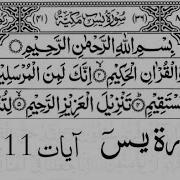 (٤١) سُورَةُ يٰسٓ مَكِّيَّةٌ (٣٦)
بِسْمِ اللّٰهِ الرَّحْمٰنِ الرَّحِيْمِ
وَالْقُرْاٰنِ الْحَكِيْمِ ۙ اِنَّكَ لَمِنَ الْمُرْسَلِيْ
سْتَقِيْمٍ ؕ تَنْزِيْلَ الْعَزِيْزِ الرَّحِيْمِ ۙ لِتُ
رة يسٓ آیات 11